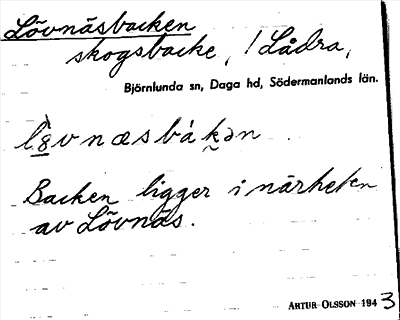 Lövnäsbacken
skogsbacke, / Lådra,
Björnlunda sn, Daga hd, Södermanlands län.
Backen ligger i närheten
av Lövnäs.
ARTUR OLSSON 1943